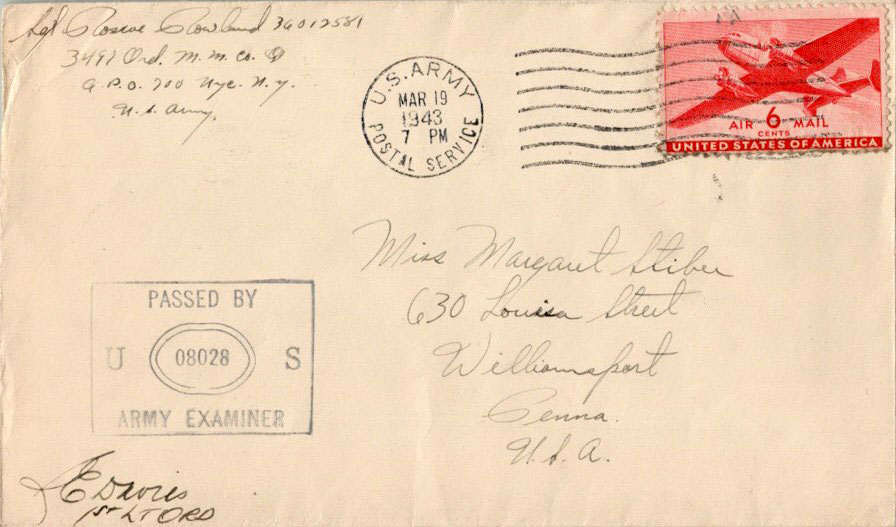 Sgt Roscoe Rowland 36012581
3497 Ord. M. M. Co. Q
A.P.O. 700 Nyc. N.Y.
U.S. Army.
U.S. ARMY
MAR 19
1943
7 PM
POSTAL SERVICE
AIR 6 MAIL
CENTS
UNITED STATES OF AMERICA
Miss Margaret Stiber
630 Louisa Street
Williamsport
Penna.
U.S.A.
PASSED BY
U 08028 S
ARMY EXAMINER
E Davies
1st LT ORD